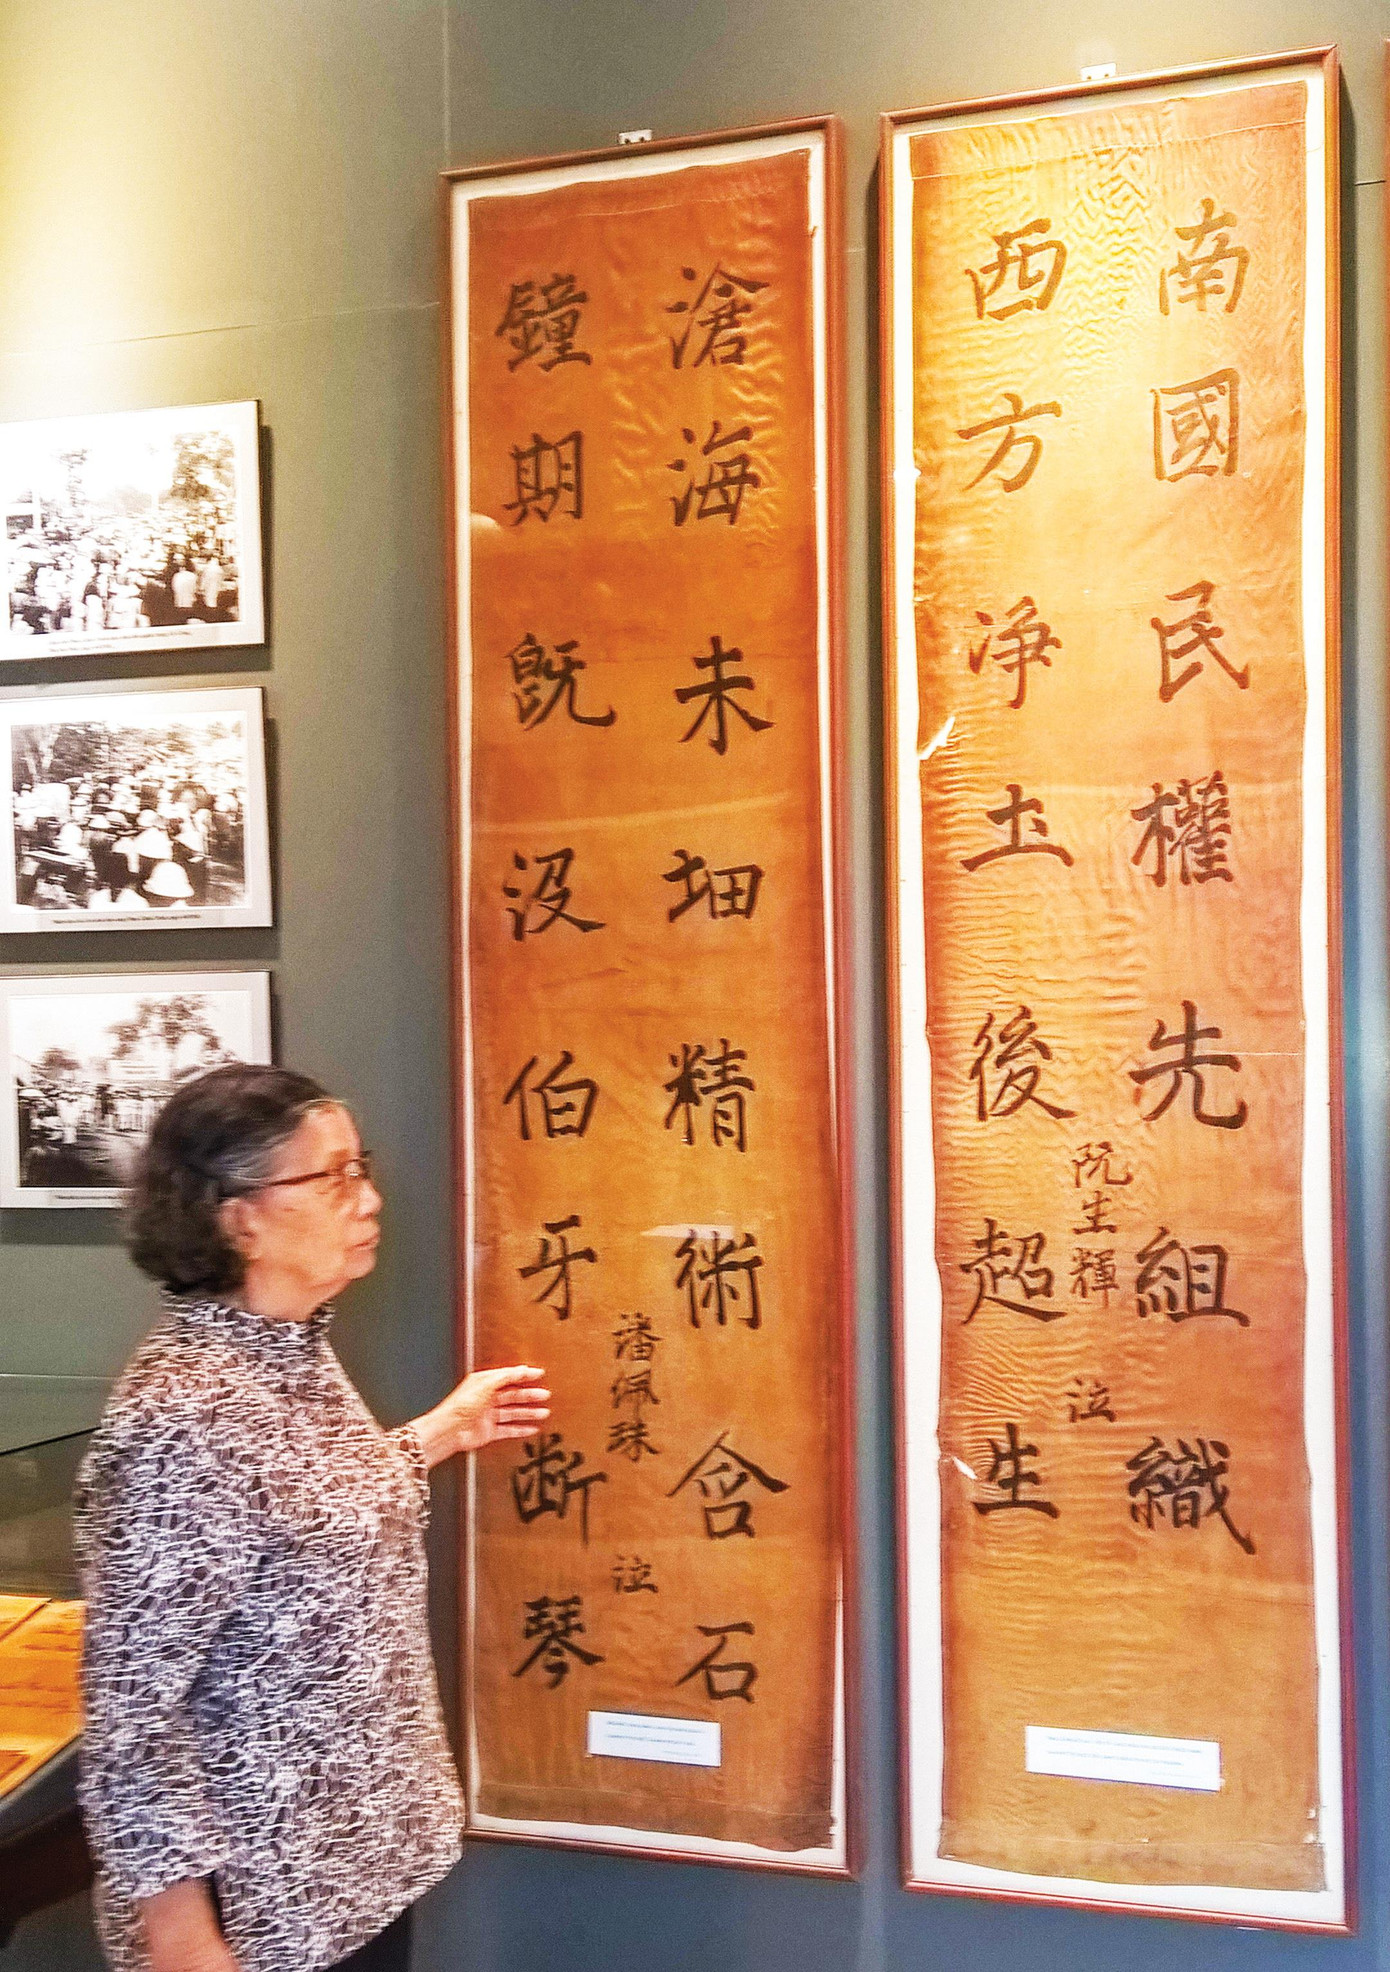 南國民權先組織
阮生輝 泣
西方淨圡後超生
滄海未精術含石
潘佩珠 泣
鐘期既没伯牙断琴